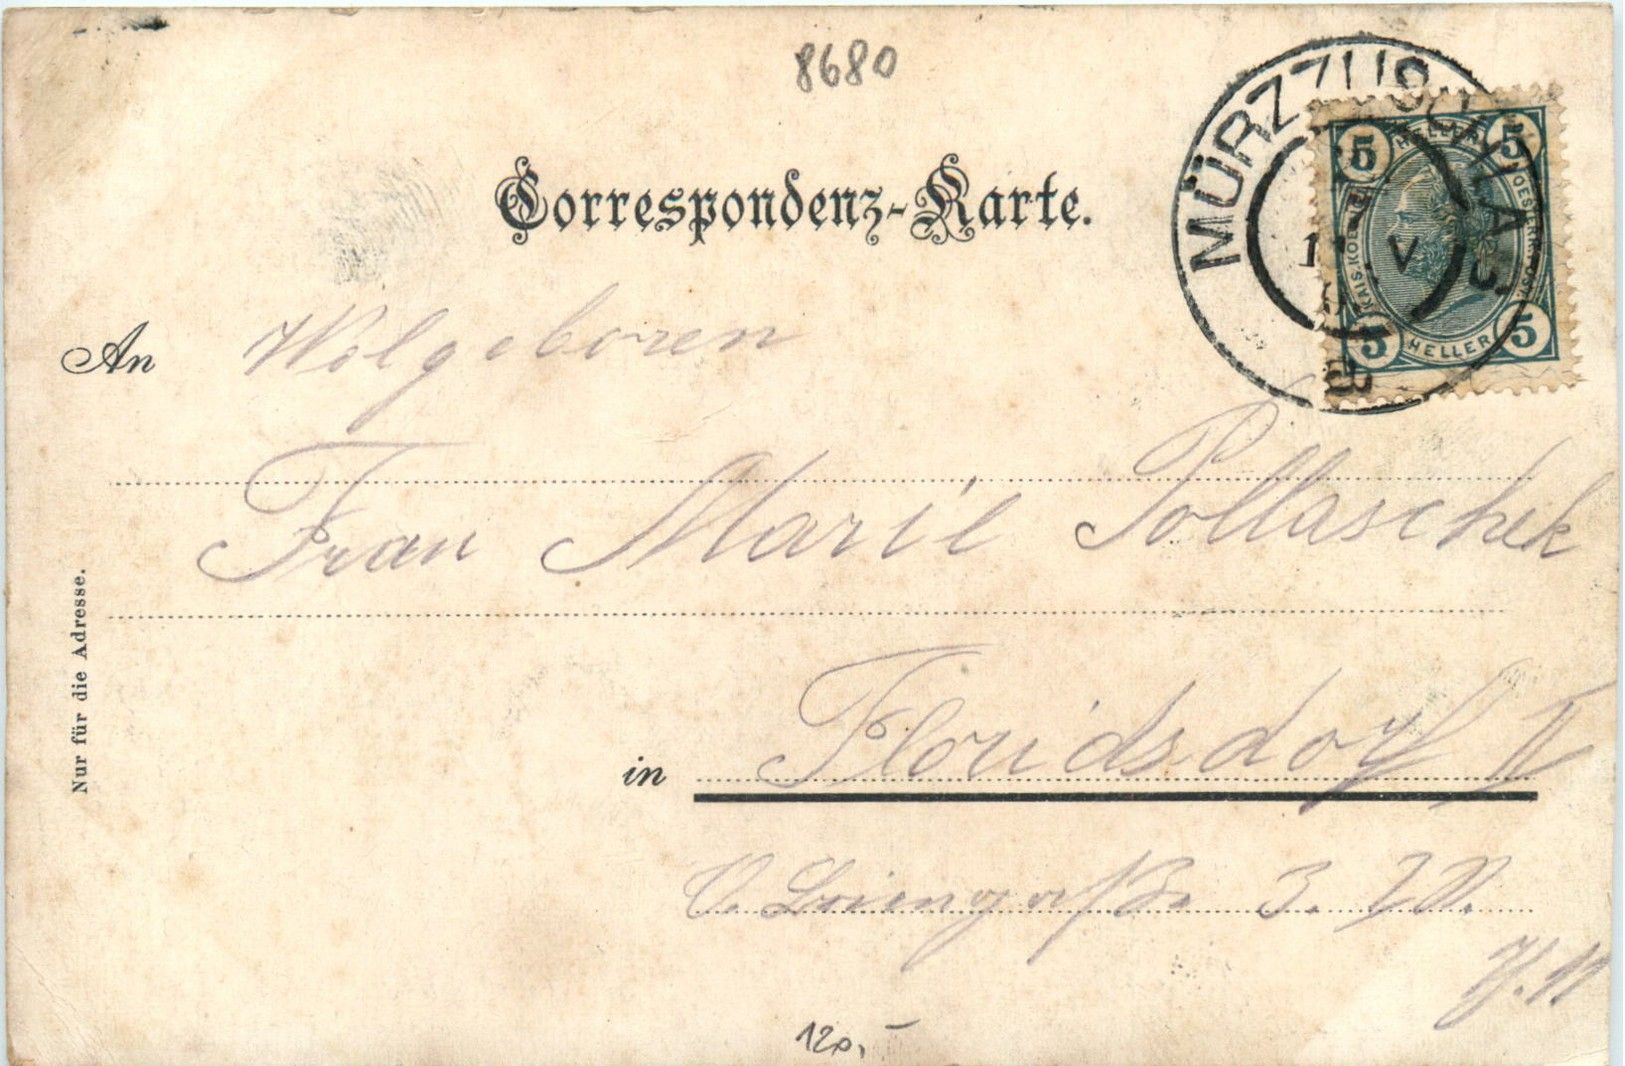 8680
Correspondenz-Karte.
MÜRZZUSCHLAG
5 HELLER 5
KAIS. KOE OESTERR. POST
5 HELLER 5
V
a
An Wolgeboren
Frau Marie Pollaschek
Nur für die Adresse.
in Floridsdorf
3.
120,-